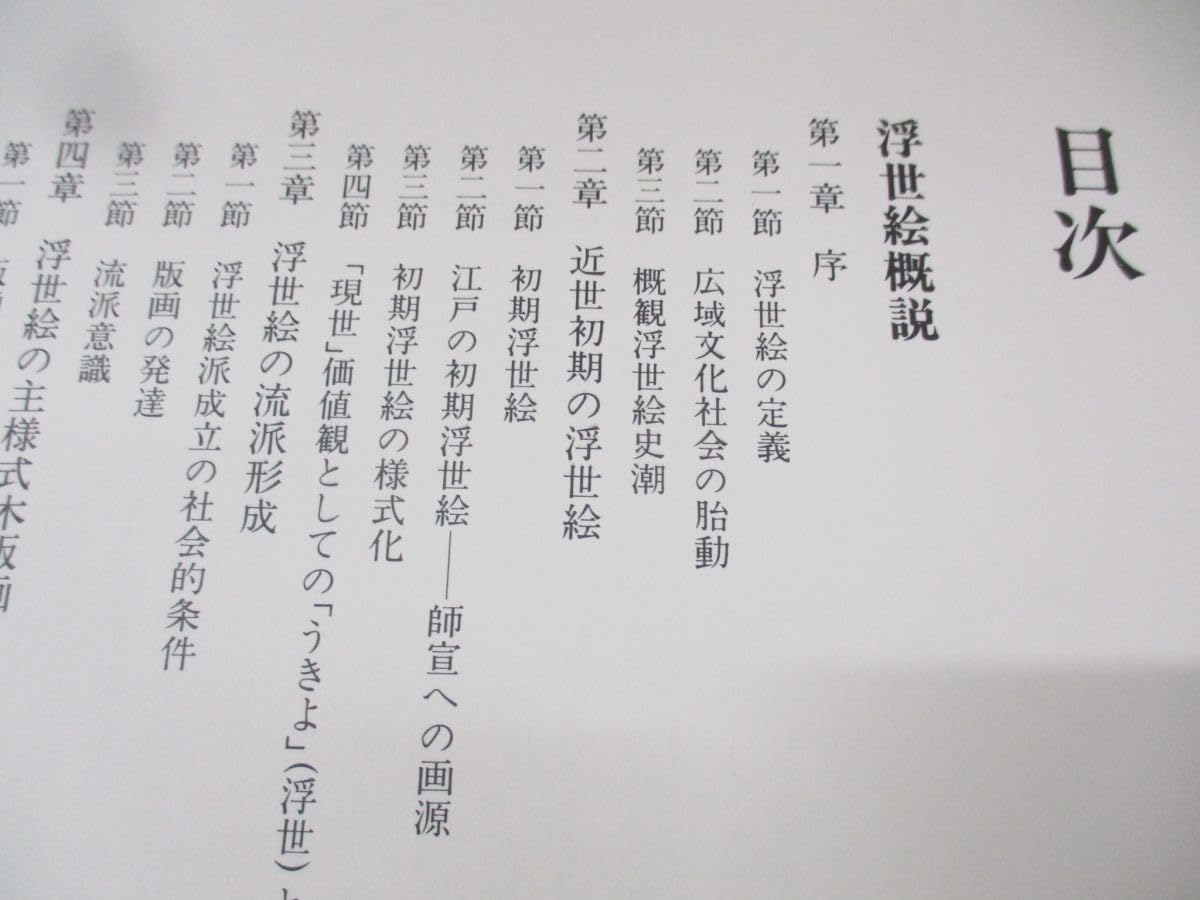 目次
浮世絵概説
第一章 序
第一節 浮世絵の定義
第二節 広域文化社会の胎動
第三節 概観浮世絵史潮
第二章 近世初期の浮世絵
第一節 初期浮世絵
第二節 江戸の初期浮世絵──師宣への画源
第三節 初期浮世絵の様式化
第四節 「現世」価値観としての「うきよ」(浮世)と
第三章 浮世絵の流派形成
第一節 浮世絵派成立の社会的条件
第二節 版画の発達
第三節 流派意識
第四章 浮世絵の主様式木版画
第一節